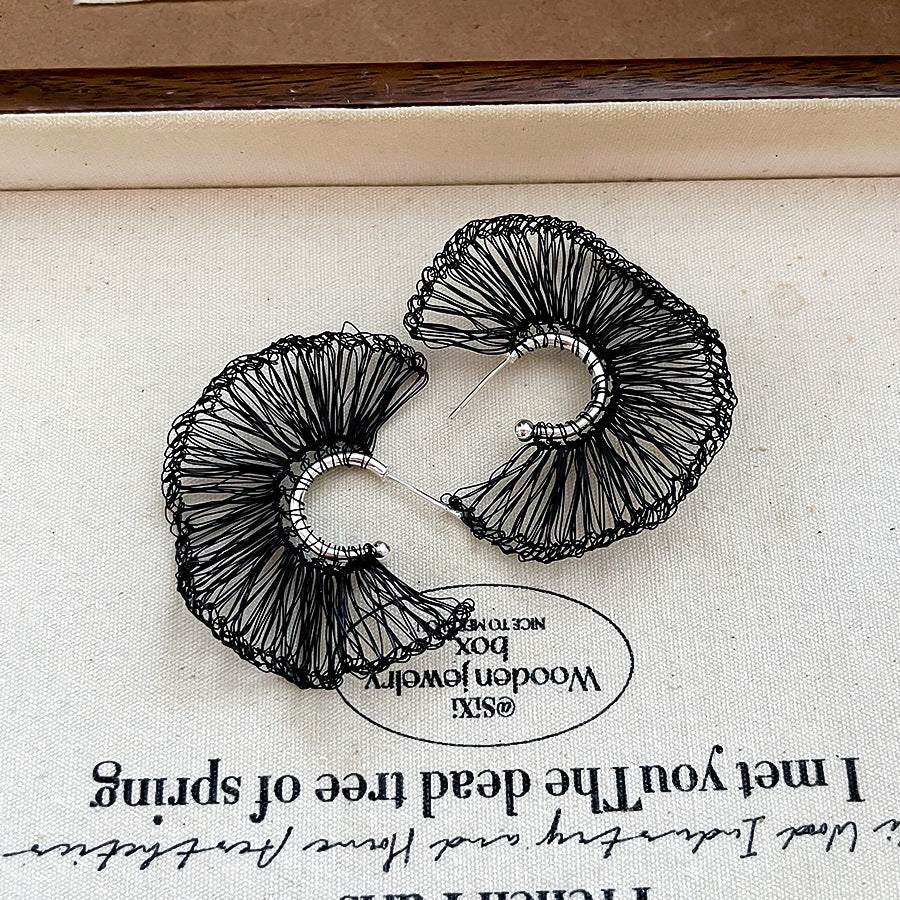 Wood Industry and Home Aesthetics
I met youThe dead tree of spring
@SiXi
Wooden jewelry
box
NICE TO